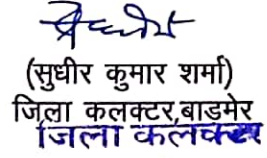 (सुधीर कुमार शर्मा)
जिला कलक्टर,बाडमेर
जिला कलक्टर